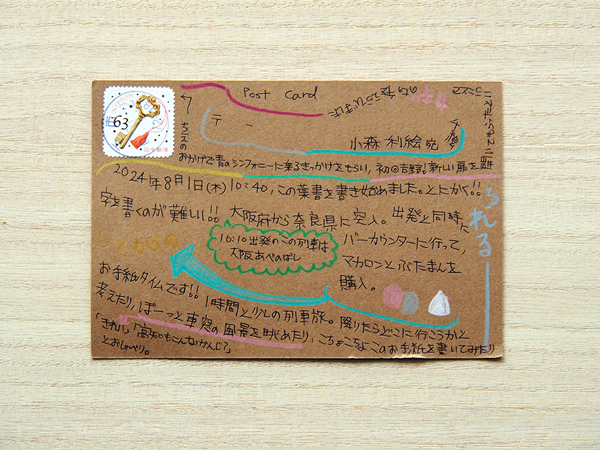 Post Card
63
〒 ー
小森 利絵 宛
ちえの
おかげで青のシンフォニーに乗るきっかけをもらい、初の吉野!新しい扉を開
2024年8月1日(木) 10:40、この葉書を書き始めました。とにかく!!
字を書くのが難しい!! 大阪府から奈良県に突入。出発と同時に
バーカウンターに行って、
マカロンとぶたまんを
購入。
10:10出発のこの列車は
大阪あべのばし
お手紙タイムです!! 1時間と少しの列車旅。降りたらどこに行こうかと
考えたり、ぼーっと車窓の風景を眺めたり、こちょこちょこのお手紙を書いてみたり
「きれい」「高知もこんなかんじ?」
とおしゃべり。